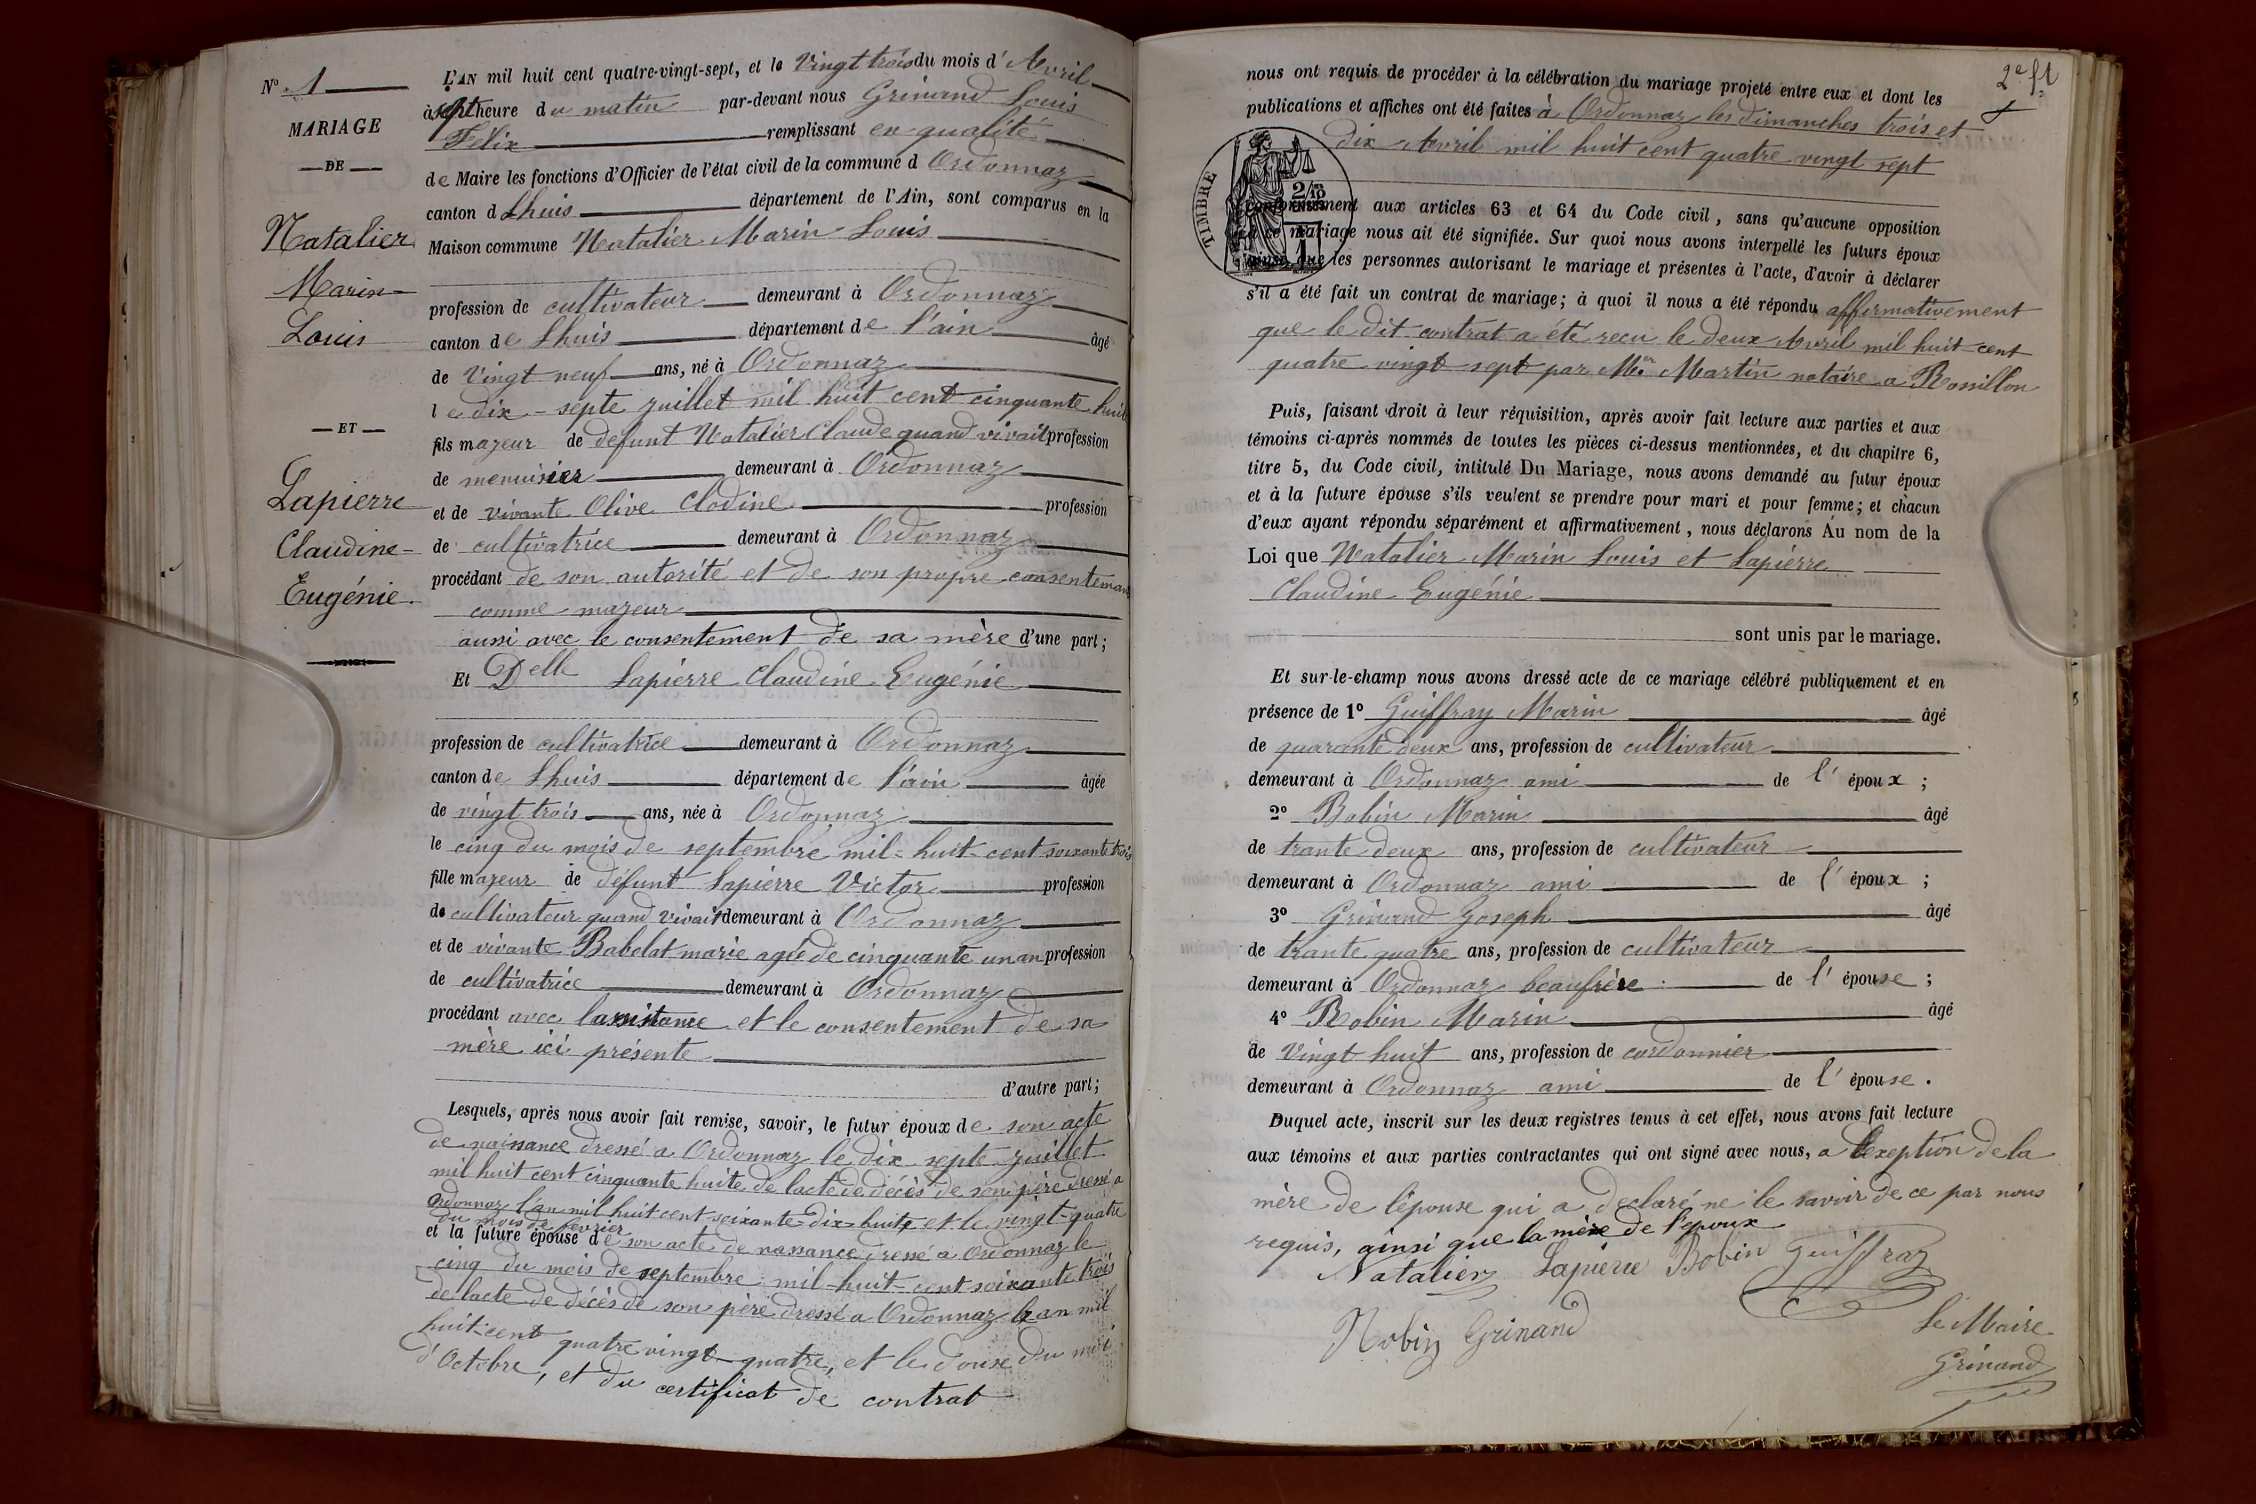 N° 1
MARIAGE
DE
Natalier
Marin
Louis
ET
Lapierre
Claudine
Eugénie
L'AN mil huit cent quatre-vingt-sept, et le Vingt trois du mois d' Avril
à sept heure du matin par-devant nous Grinand Louis
Felix remplissant en qualité
de Maire les fonctions d'Officier de l'état civil de la commune d Ordonnaz
canton d Lhuis département de l'Ain, sont comparus en la
Maison commune Natalier Marin Louis
profession de cultivateur demeurant à Ordonnaz
canton de Lhuis département de l'ain âgé
de Vingt neuf ans, né à Ordonnaz
le dix-septe juillet mil huit cent cinquante huit
fils majeur de défunt Natalier Claude quand vivait profession
de menuisier demeurant à Ordonnaz
et de vivante Olive Clodine profession
de cultivatrice demeurant à Ordonnaz
procédant de son autorité et de son propre consenteman
comme majeur
aussi avec le consentement de sa mère d'une part;
Et Delle Lapierre Claudine Eugénie
profession de cultivatrice demeurant à Ordonnaz
canton de Lhuis département de l'ain âgée
de vingt trois ans, née à Ordonnaz
le cinq du mois de septembre mil-huit-cent soixante trois
fille majeur de défunt Lapierre Victor profession
de cultivateur quand vivait demeurant à Ordonnaz
et de vivante Babolat marie agée de cinquante un an profession
de cultivatrice demeurant à Ordonnaz
procédant avec lassistance et le consentement de sa
mère ici présente
d'autre part;
Lesquels, après nous avoir fait remise, savoir, le futur époux de son acte
de naissance dressé a Ordonnaz le dix septe juillet
mil huit cent cinquante huite de lacte de décès de son père dressé a
Ordonnaz l'an mil huit cent soixante-dix-huite et le vingt-quatre
du mois de fevrier
et la future épouse de son acte de nassance dressé a Ordonnaz le
cinq du mois de septembre mil-huit-cent soixante trois
de lacte de décès de son père dressé a Ordonnaz lan mil
huit-cent quatre vingt-quatre, et le douse du moi
d'Octobre, et du certificat de contrat
2e ft
nous ont requis de procéder à la célébration du mariage projeté entre eux et dont les
publications et affiches ont été faites à Ordonnaz les dimanches trois et
dix Avril mil huit cent quatre vingt sept
TIMBRE
2/10
conformément aux articles 63 et 64 du Code civil, sans qu'aucune opposition
à ce mariage nous ait été signifiée. Sur quoi nous avons interpellé les futurs époux
ainsi que les personnes autorisant le mariage et présentes à l'acte, d'avoir à déclarer
s'il a été fait un contrat de mariage; à quoi il nous a été répondu affirmativement
que le dit contrat a été recu le deux Avril mil huit-cent
quatre vingt sept par Me Martin notaire a Rossillon
Puis, faisant droit à leur réquisition, après avoir fait lecture aux parties et aux
témoins ci-après nommés de toutes les pièces ci-dessus mentionnées, et du chapitre 6,
titre 5, du Code civil, intitulé Du Mariage, nous avons demandé au futur époux
et à la future épouse s'ils veulent se prendre pour mari et pour femme; et chacun
d'eux ayant répondu séparément et affirmativement, nous déclarons Au nom de la
Loi que Natalier Marin Louis et Lapierre
Claudine Eugénie
sont unis par le mariage.
Et sur-le-champ nous avons dressé acte de ce mariage célébré publiquement et en
présence de 1° Guiffray Marin âgé
de quarante deux ans, profession de cultivateur
demeurant à Ordonnaz ami de l' époux ;
2° Bobin Marin âgé
de trante deux ans, profession de cultivateur
demeurant à Ordonnaz ami de l' époux ;
3° Grinand Joseph âgé
de trante quatre ans, profession de cultivateur
demeurant à Ordonnaz beaufrère de l' épouse ;
4° Robin Marin âgé
de Vingt huit ans, profession de cordonnier
demeurant à Ordonnaz ami de l' épouse.
Duquel acte, inscrit sur les deux registres tenus à cet effet, nous avons fait lecture
aux témoins et aux parties contractantes qui ont signé avec nous, a l'exeption de la
mère de l'épouse qui a declaré ne le savoir de ce par nous
requis, ainsi que la mère de l'epoux
Natalier Lapierre Bobin Guiffray
Robin Grinand
Le Maire
Grinand